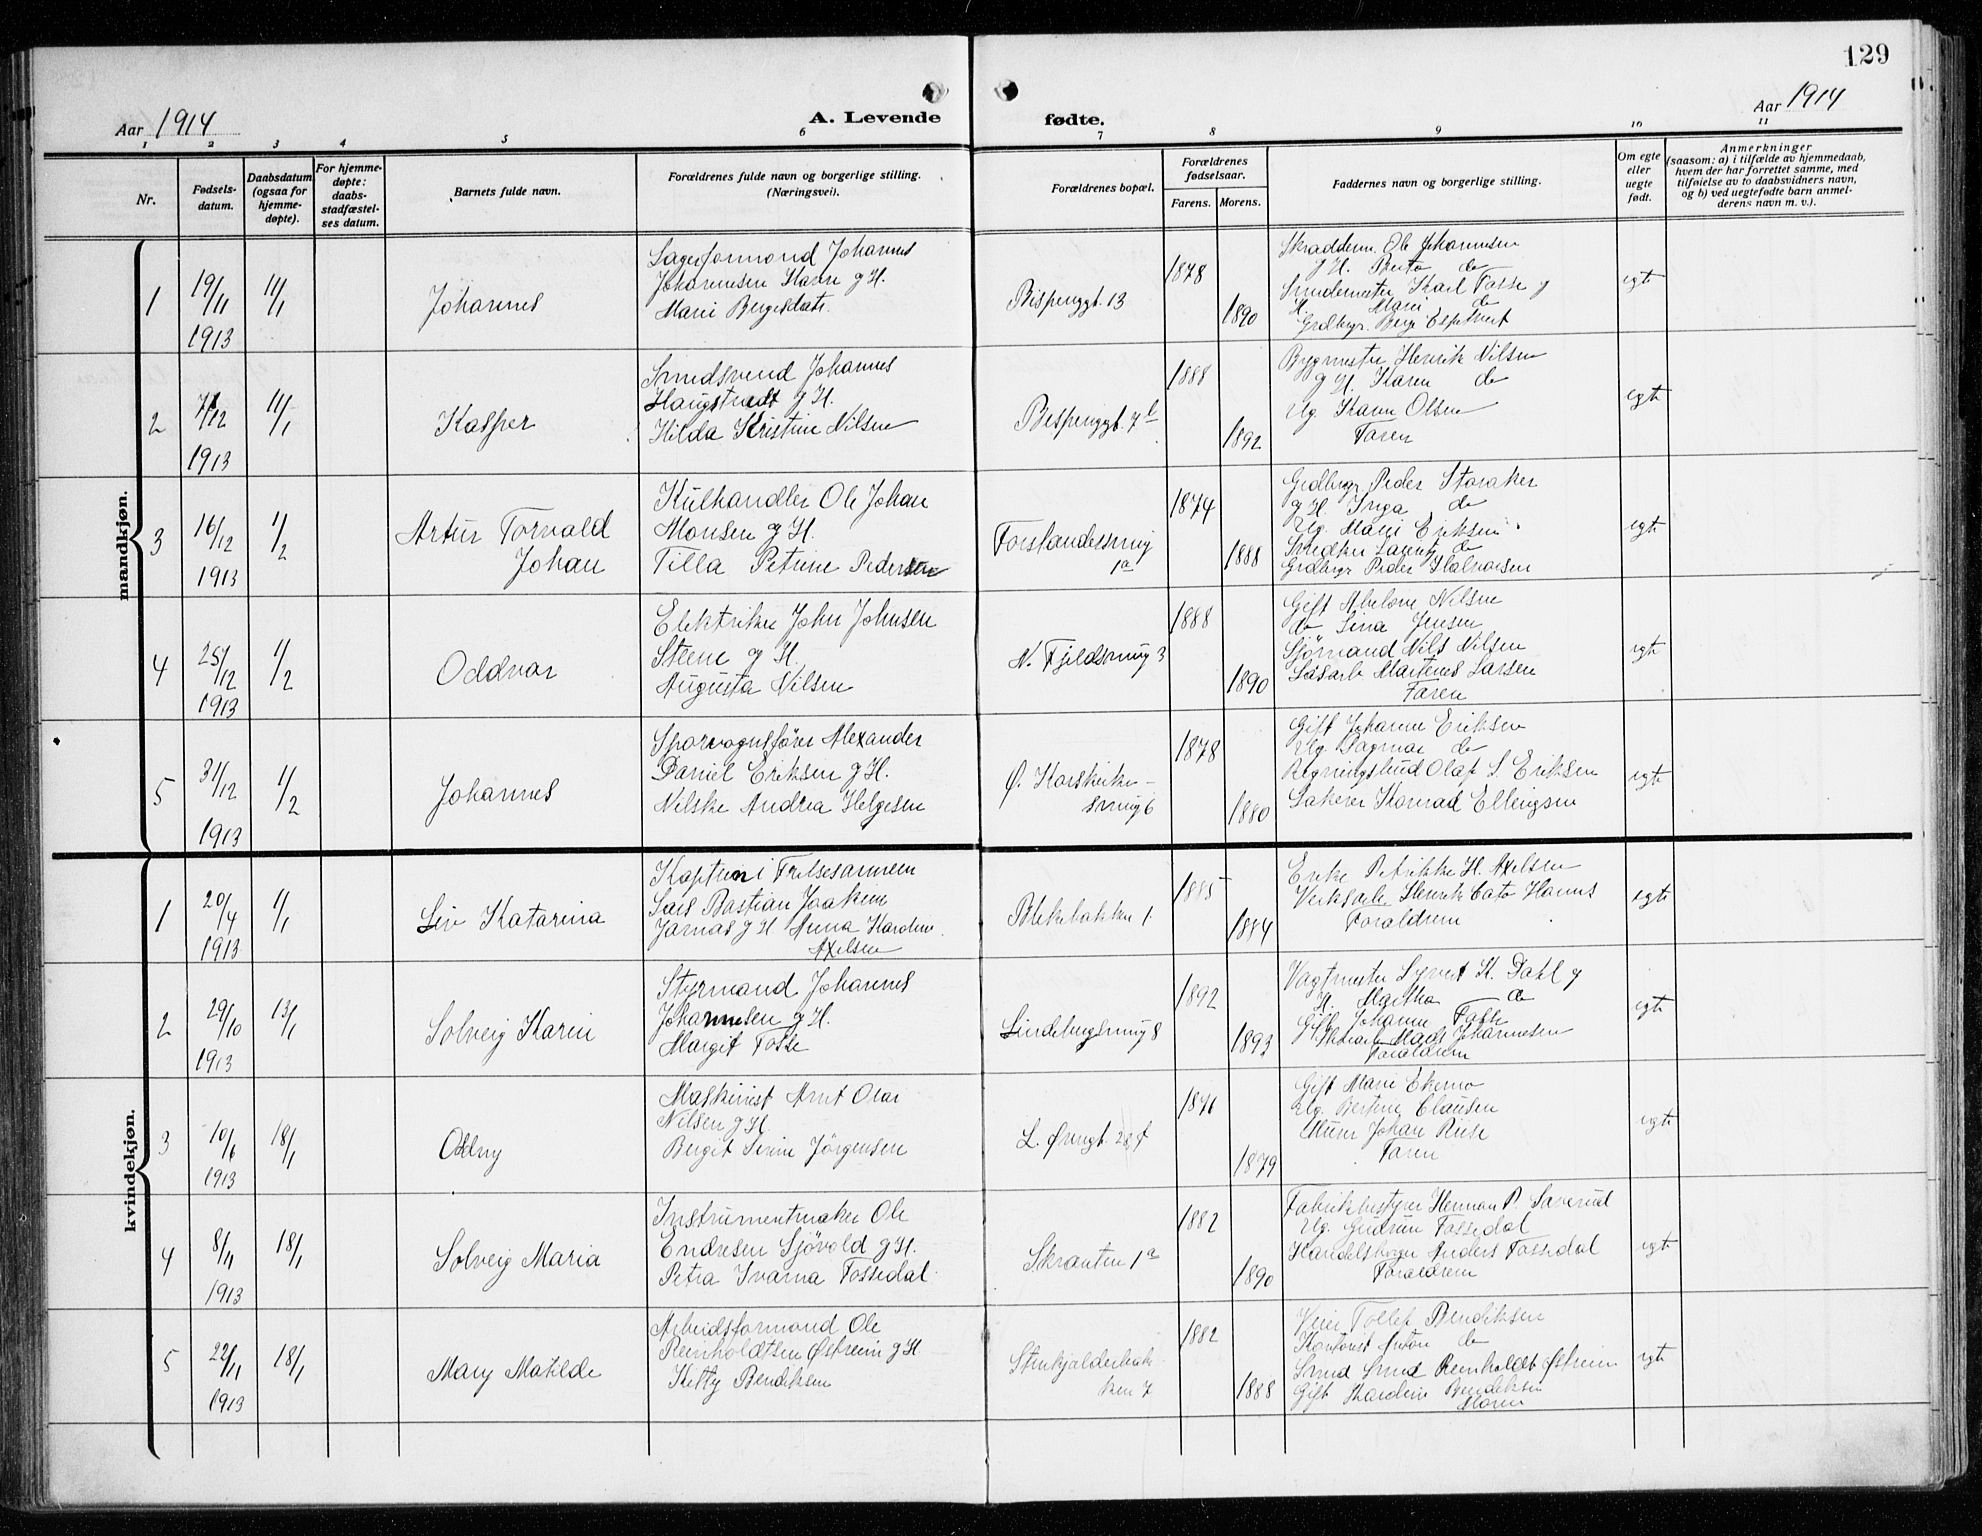 129
Aar 1914
A. Levende
fødte.
Aar 1914
1 2 3 4 5 6 7 8 9 10 11
Nr.
Fødsels-
datum.
Daabsdatum
(ogsaa for
hjemme-
døpte).
For hjemme-
døpte:
daabs-
stadfæstel-
ses datum.
Barnets fulde navn.
Forældrenes fulde navn og borgerlige stilling.
(Næringsvei).
Forældrenes bopæl.
Forældrenes
fødselsaar.
Farens. Morens.
Faddernes navn og borgerlige stilling.
Om egte
eller
uegte
født.
Anmerkninger
(saasom: a) i tilfælde av hjemmedaab,
hvem der har forrettet samme, med
tilføielse av to daabsvidners navn,
og b) ved uegtefødte barn anmel-
derens navn m. v.).
mandkjøn.
1
19/11
1913
11/1
Johannes
Johannes
Johannesen g H.
Marie
Bispenggt. 13
1878
1890
Ole Johannesen
g H. Berta do
Karl Fosse g
H. Marie do
egte
2
/12
1913
11/1
Kasper
Smedsvend Johannes
Haugstvedt g H.
Hilda Kristine Nilsen
Bispenggt. 7b
1888
1892
Bygmester Henrik Nilsen
g H. Karen do
Ug. Karen Olsen
Faren
egte
3
16/12
1913
1/2
Artur Torvald
Johan
Kulhandler Ole Johan
Monsen g H.
Tilla Petrine Pedersen
Forstandersmug
1a
1874
1888
Grdbrgr Peder Storaker
g H. Inga do
Ug. Marie Eriksen
do
Grdbrgr Peder Halvorsen
egte
4
25/12
1913
1/2
Oddvar
Elektriker John Johnsen
Steene g H.
Augusta Nilsen
N. Fjeldsmug 3
1888
1890
Gift Abelone Nilsen
do Lina Jensen
Sjømand Nils Nilsen
Løsarb Martenes Larsen
Faren
egte
5
31/12
1913
1/2
Johannes
Sporvognsfører Alexander
Daniel Eriksen g H.
Nilske Andrea Helgesen
Ø. Korskirke-
smug 6
1878
1880
Gift Johanne Eriksen
Ug. Dagmar do
Regningsbud Olaf S. Eriksen
Konrad Ellingsen
egte
kvindekjøn.
1
20/4
1913
1/1
Liv Katarina
Kaptein i Frelsesarmeen
Lars Bastian Joakim
Jarnas g H. Anna Kardine
Axelsen
Blekebakken 1.
1885
1884
Enke Petrikke H. Axelsen
Henrik Cato Hannes
Forældrene
egte
2
29/10
1913
13/1
Solveig Karin
Styrmand Johannes
Johannesen g H.
Margit Fosse
Lindebergsmug 8
1892
1893
Vagtmester Syvert K. Dahl g
H. Martha do
Gift Johanne Fosse
Mads Johannesen
Forældrene
egte
3
10/6
1913
18/1
Oddny
Maskinist Arnt Olai
Nilsen g H.
Berget Serine Jørgensen
L. Øvregt. 28 f
1876
1879
Gift Marie Ekerno
Ug. Bertine Clausen
Murer Johan Riise
Faren
egte
4
8/11
1913
18/1
Solveig Maria
Instrumentmaker Ole
Endresen Sjøvold g H.
Petra Ivarna Fossedal
Skranten 1a
1882
1890
Fabrikbestyrer Herman P. Saverud
Ug. Gudrun Fossedal
Anders Fossedal
Forældrene
egte
5
22/11
1913
18/1
Mary Matilde
Arbeidsformand Ole
Reinholdtsen Østrein g H.
Kitty Bendiksen
Stenkjælderbak
ken 7
1882
1888
Tollef Bendiksen
Kontorist Anton do
Smed Reinholdt Østrein
Gift Kardine Bendiksen
Moren
egte